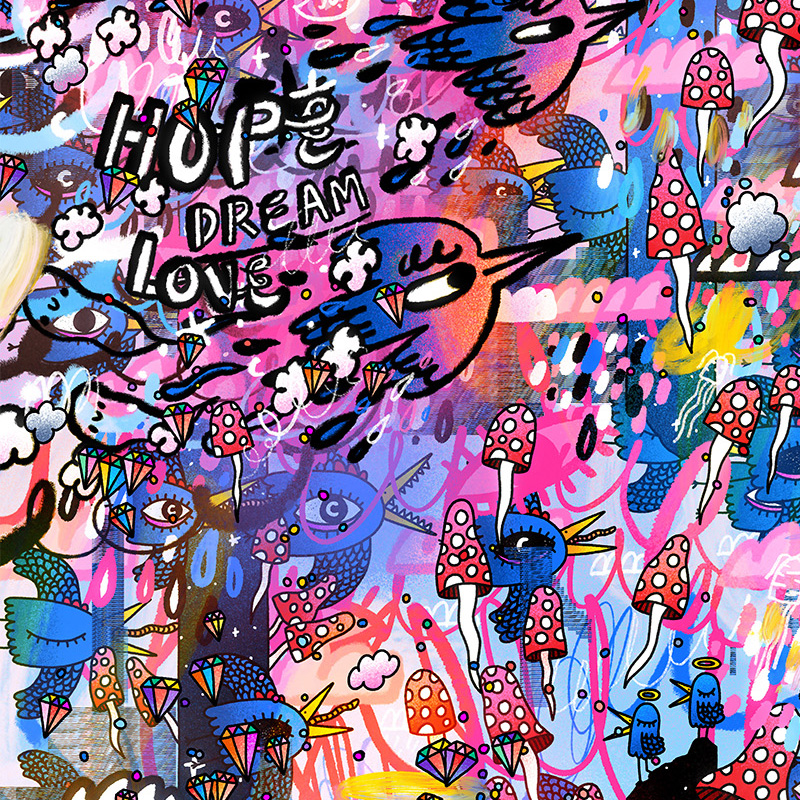 HOPE
DREAM
LOVE